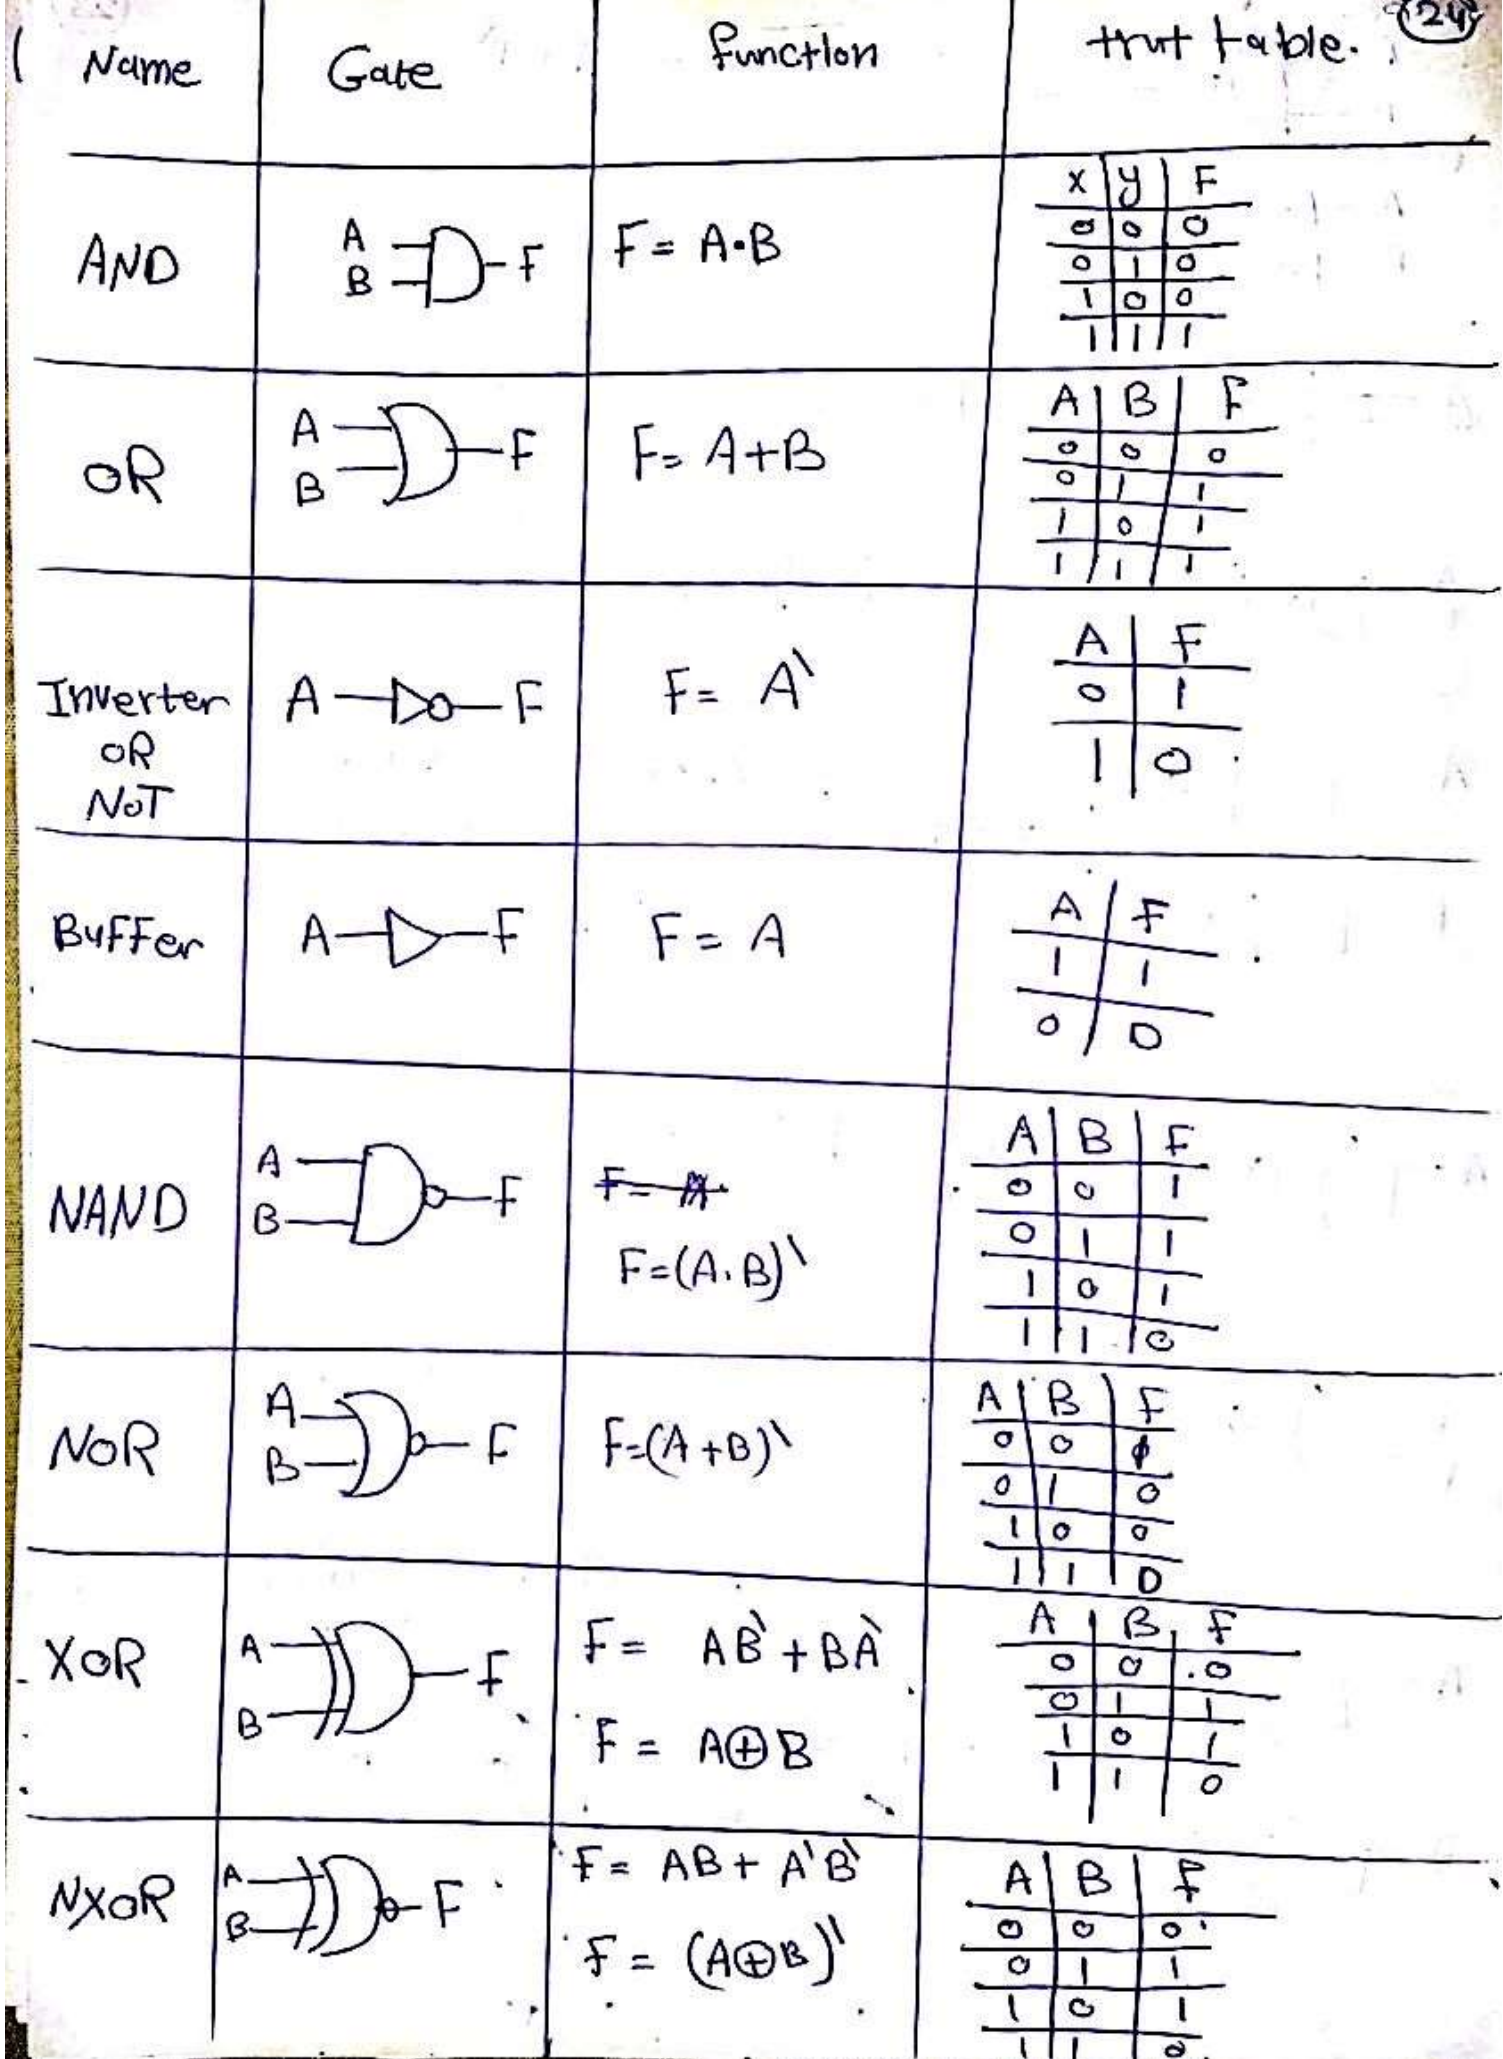 24
Name Gate function trut table.
AND
A
B
F
F = A·B
x y F
0 0 0
0 1 0
1 0 0
1 1 1
OR
A
B
F
F= A+B
A B F
0 0 0
0 1 1
1 0 1
1 1 1
Inverter
OR
NOT
A F
F= A\
A F
0 1
1 0
Buffer
A F
F= A
A F
1 1
0 0
NAND
A
B
F
F= A
F=(A.B)\
A B F
0 0 1
0 1 1
1 0 1
1 1 0
NOR
A
B
F
F=(A+B)\
A B F
0 0
0 1 0
1 0 0
1 1 0
XOR
A
B
F
F= AB\ + BA\
F = A⊕B
A B F
0 0 0
0 1 1
1 0 1
1 1 0
NXOR
A
B
F
F= AB+ A'B\
F= (A⊕B)\
A B F
0 0 0
0 1 1
1 0 1
1 1 0